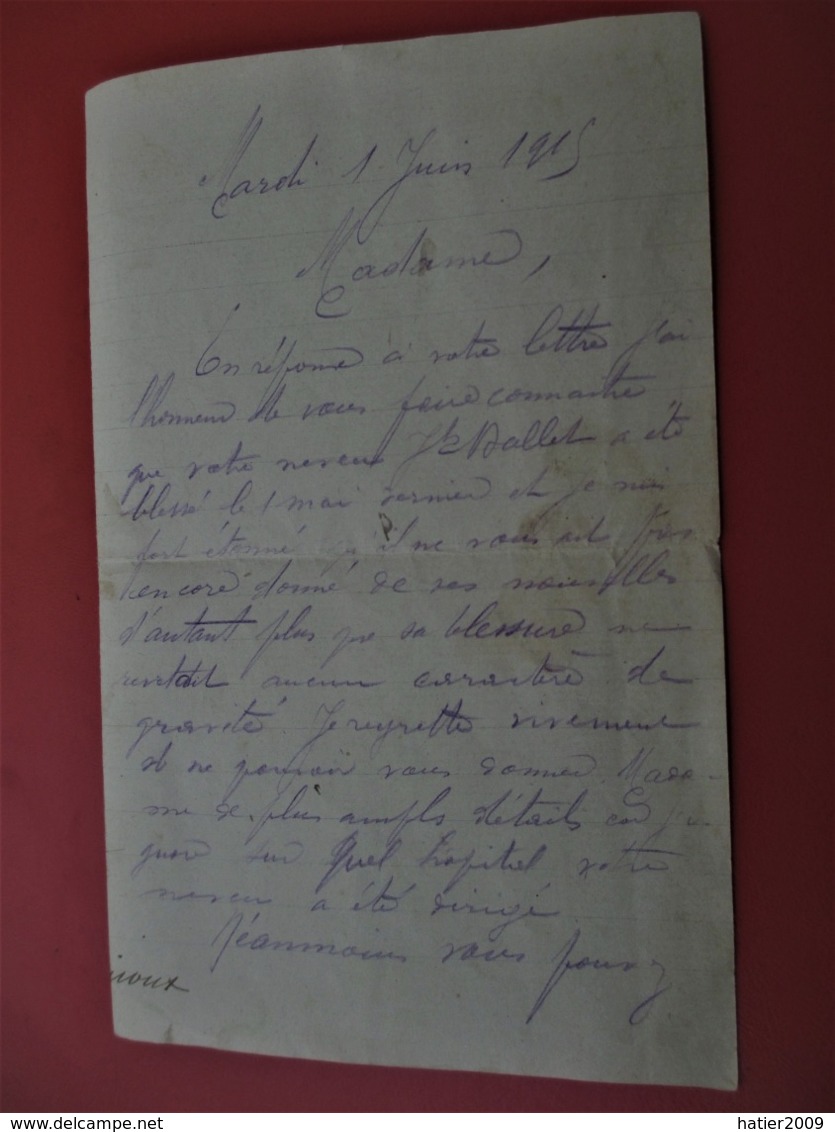 Mardi 1 Juin 1915
Madame,
En réponse à votre lettre j'ai
l'honneur de vous faire connaitre
que votre neveu Ballet a été
blessé le 1 mai dernier et je suis
fort étonné qu'il ne vous ait pas
encore donné de ses nouvelles
d'autant plus que sa blessure ne
revetait aucun caractère de
gravité Je regrette vivement
de ne pouvoir vous donner Mada-
me de plus ampls détails car j'i-
gnore sur quel hopital votre
neveu a été dirigé
Néanmoins vous pouvez
ioux
delcampe.net
hatier2009